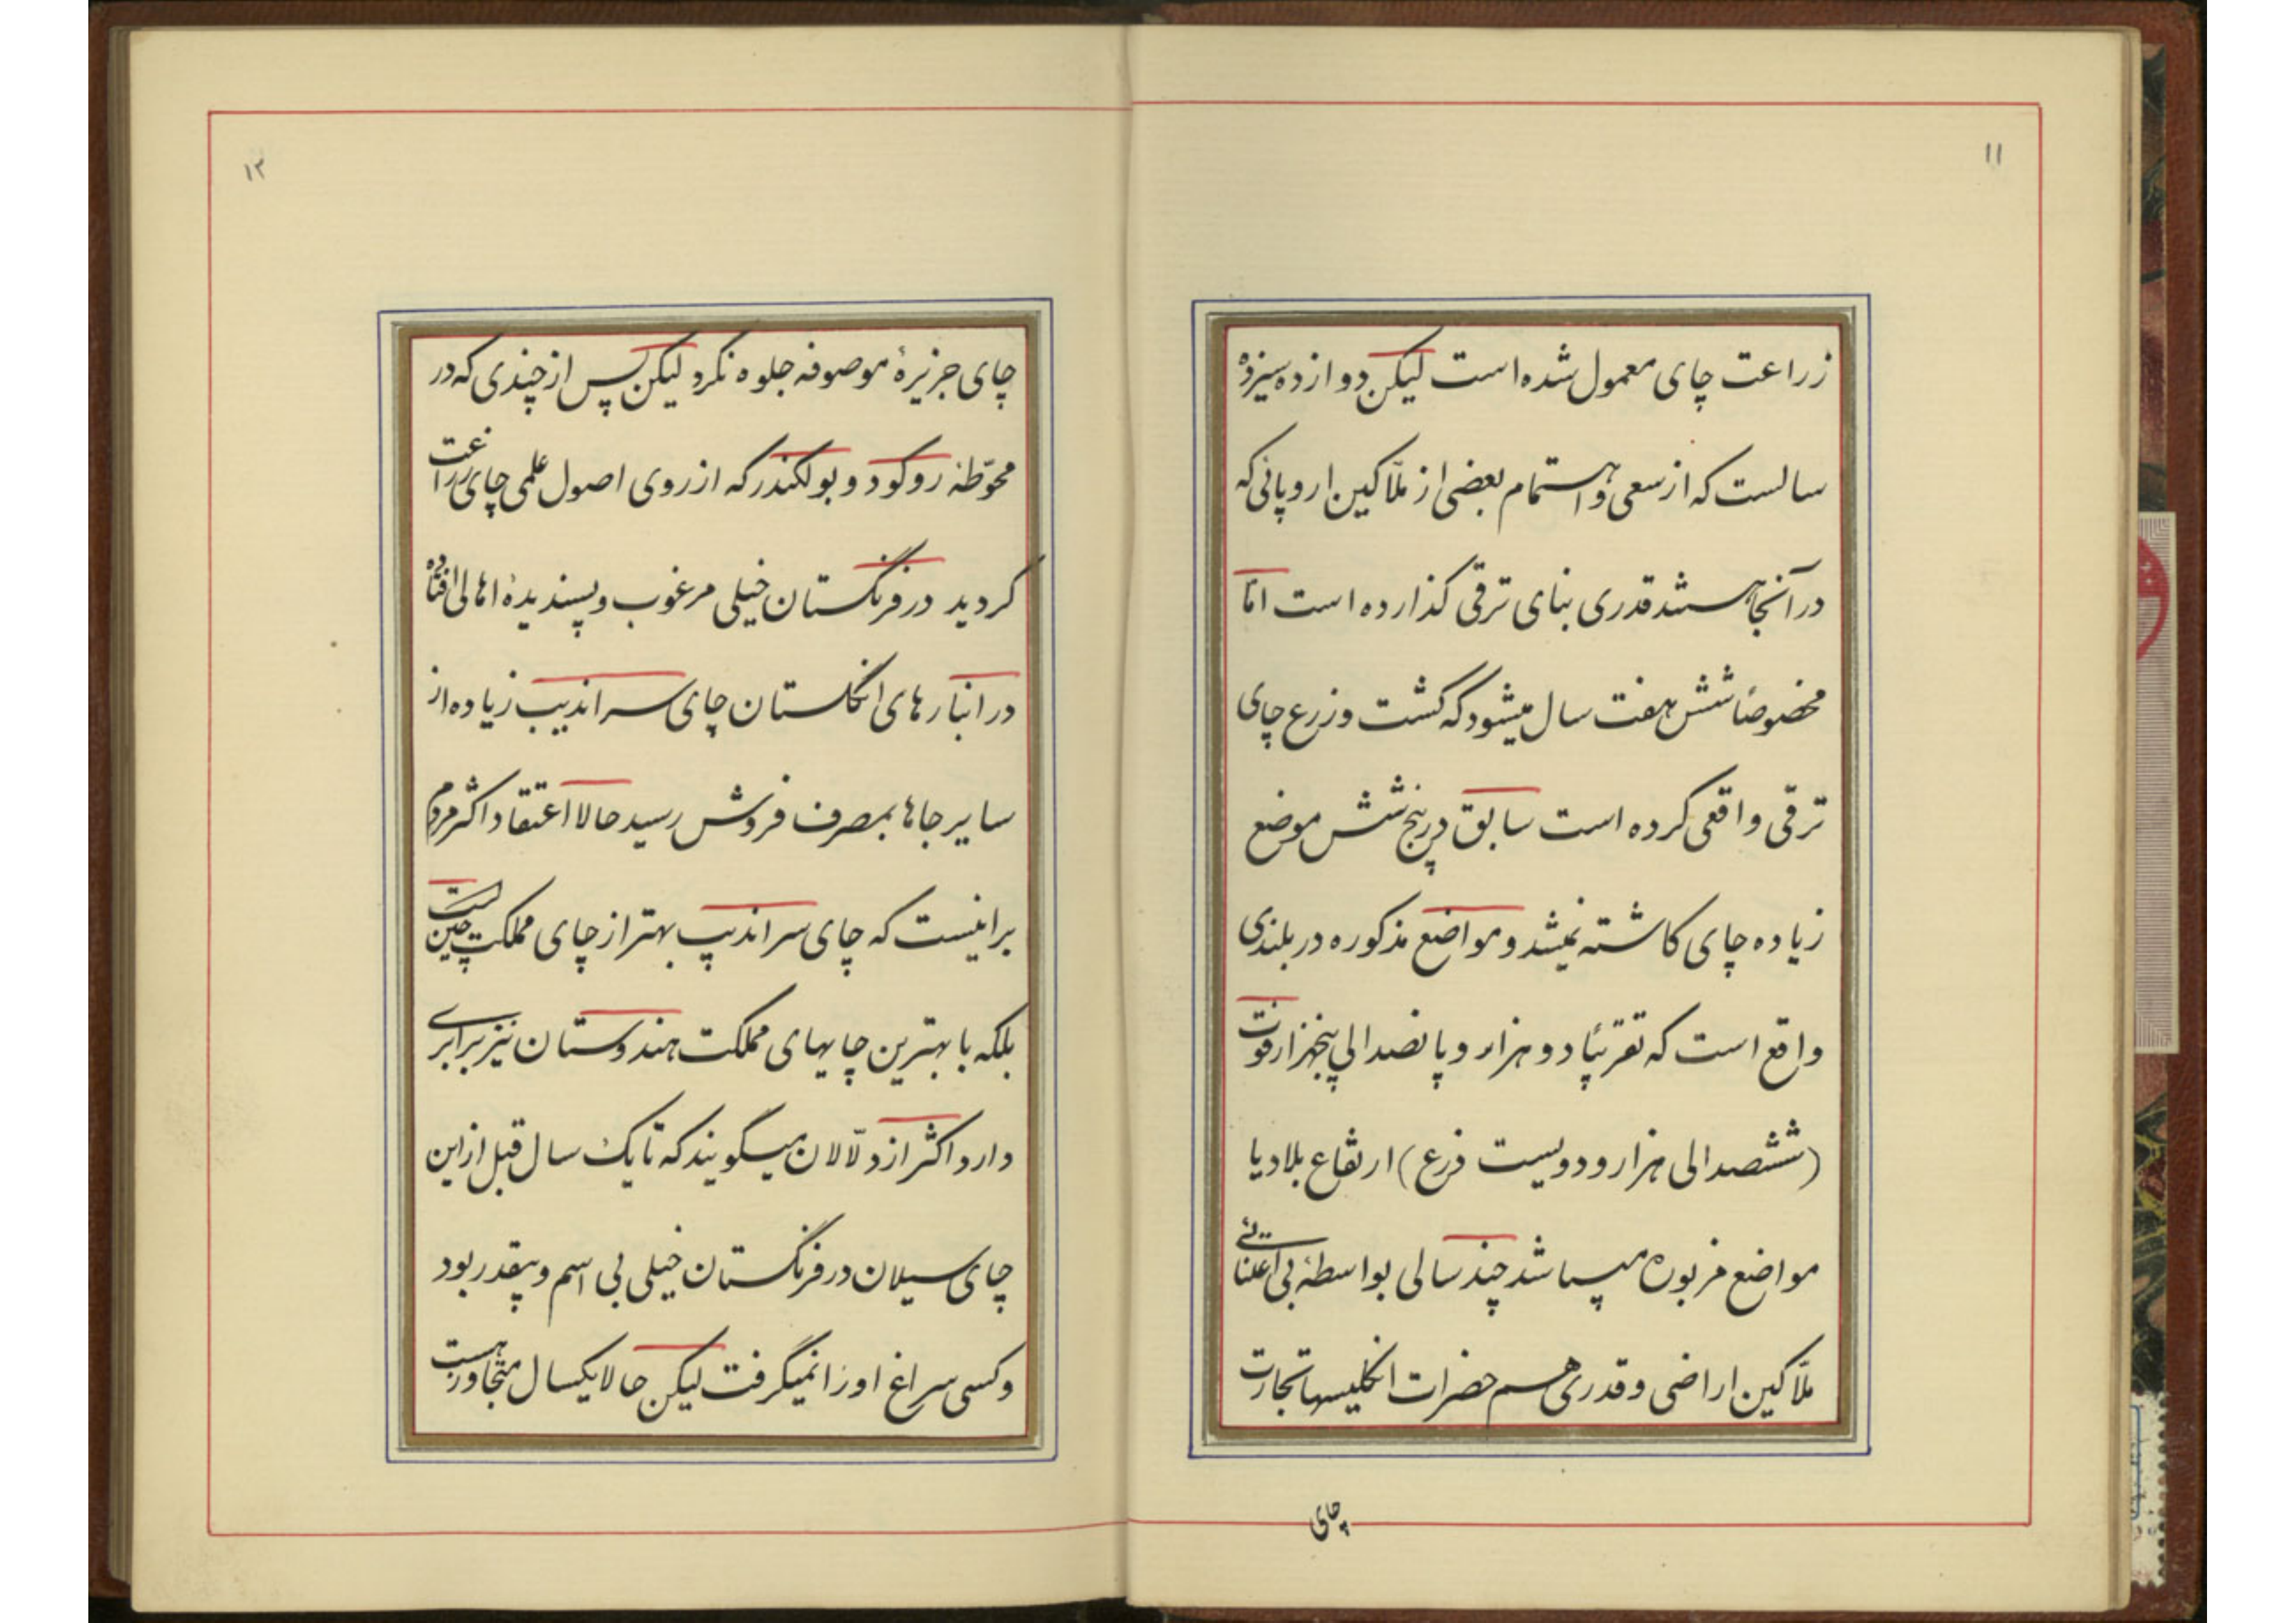 ۱۱
زراعت چای معمول شده است لیکن دوازده سیزده
سالست که از سعی و اهتمام بعضی از ملّاکین اروپائی که
در آنجا هستند قدری بنای ترقی گذارده است امّا
مخصوصاً شش هفت سال میشود که کشت و زرع چای
ترقی واقعی کرده است سابق در پنج شش موضع
زیاده چای کاشته نمیشد و مواضع مذکوره در بلندی
واقع است که تقریباً دو هزار و پانصد الی پنجهزار فوت
(ششصد الی هزار و دویست ذرع) ارتفاع بلاد یا
مواضع مزبوره میباشد چند سالی بواسطهٔ بی اعتنائی
ملّاکین اراضی و قدری هم حضرات انگلیسها تجارت
چای
۱۲
چای جزیرهٔ موصوفه جلوه نکرد لیکن پس از چندی که در
محوّطهٔ روکود و بولکندر که از روی اصول علمی چای زراعت
گردید در فرنگستان خیلی مرغوب و پسندیدهٔ اهالی افتاده
در انبارهای انگلستان چای سراندیب زیاده از
سایر جاها بمصرف فروش رسید حالا اعتقاد اکثر مردم
براینست که چای سراندیپ بهتر از چای مملکت چین است
بلکه با بهترین چایهای مملکت هندوستان نیز برابری
دارد اکثر از دلّالان میگویند که تا یک سال قبل از این
چای سیلان در فرنگستان خیلی بی اسم و بیقدر بود
و کسی سراغ اورا نمیگرفت لیکن حالا یکسال متجاوز است